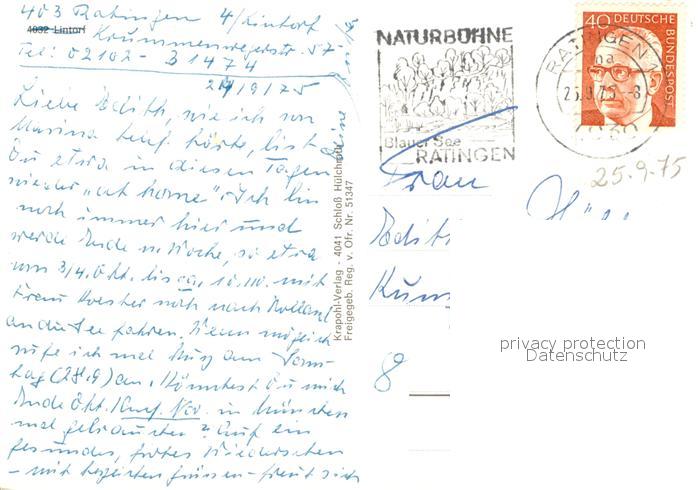 403 Ratingen 4/Lintorf
4032 Lintorf
Krummenwegerstr. 57
Tel: 02102 - 31474
24/9/75
Liebe Edith, wie ich von
Marina telef. hörte, bist
Du etwa in diesen Tagen
wieder "at home". Ich bin
noch immer hier und
werde Ende n. Woche, so etwa
um 3/4. Okt. bis ca. 10. mit
Frau noch nach Holland
an die See fahren. Wenn möglich
rufe ich mal kurz am Sams-
tag (28.9) an. Könntest Du mich
Ende Okt. Anf. Nov. in München
mal gebrauchen? Auf ein
gesundes, frohes Wiedersehen
– mit herzlichen Grüssen – freut sich
Krapohl-Verlag - 4041 Schloß Hülchrath
Freigegeb. Reg. v. Ofr. Nr. 51347
NATURBÜHNE
Blauer See
RATINGEN
40 DEUTSCHE
BUNDESPOST
RATINGEN 1
ma
25.9.75 -8
4030
25-9-75
Frau
Edit
Kun
8
privacy protection
Datenschutz